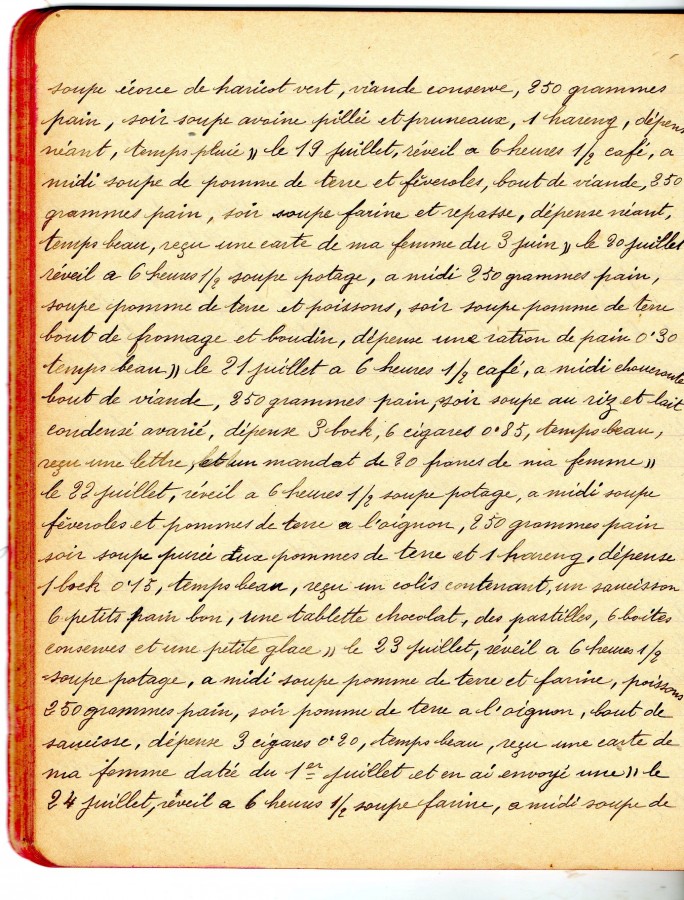 soupe écorce de haricot vert, viande conserve, 250 grammes
pain, soir soupe avoine pillée et pruneaux, 1 hareng, dépens
néant, temps pluie )) le 19 juillet, réveil a 6 heures 1/2 café, a
midi soupe de pomme de terre et fêveroles, bout de viande, 250
grammes pain, soir soupe farine et repasse, dépense néant,
temps beau, reçu une carte de ma femme du 3 juin )) le 20 juillet
réveil a 6 heures 1/2 soupe potage, a midi 250 grammes pain,
soupe pomme de terre et poissons, soir soupe pomme de terre
bout de fromage et boudin, dépense une ration de pain 0f30
temps beau )) le 21 juillet a 6 heures 1/2 café, a midi choucroute
bout de viande, 250 grammes pain, soir soupe au riz et lait
condensé avarié, dépense 3 bock, 6 cigares 0f85, temps beau,
reçu une lettre, et un mandat de 20 francs de ma femme ))
le 22 juillet, réveil a 6 heures 1/2 soupe potage, a midi soupe
fêveroles et pommes de terre a l'oignon, 250 grammes pain
soir soupe purée aux pommes de terre et 1 hareng, dépense
1 bock 0f15, temps beau, reçu un colis contenant, un saucisson
6 petits pain bon, une tablette chocolat, des pastilles, 6 boîtes
conserves et une petite glace )) le 23 juillet, réveil a 6 heures 1/2
soupe potage, a midi soupe pomme de terre et farine, poissons
250 grammes pain, soir pomme de terre a l'oignon, bout de
saucisse, dépense 3 cigares 0f20, temps beau, reçu une carte de
ma femme datée du 1er juillet et en ai envoyé une )) le
24 juillet, réveil a 6 heures 1/2 soupe farine, a midi soupe de